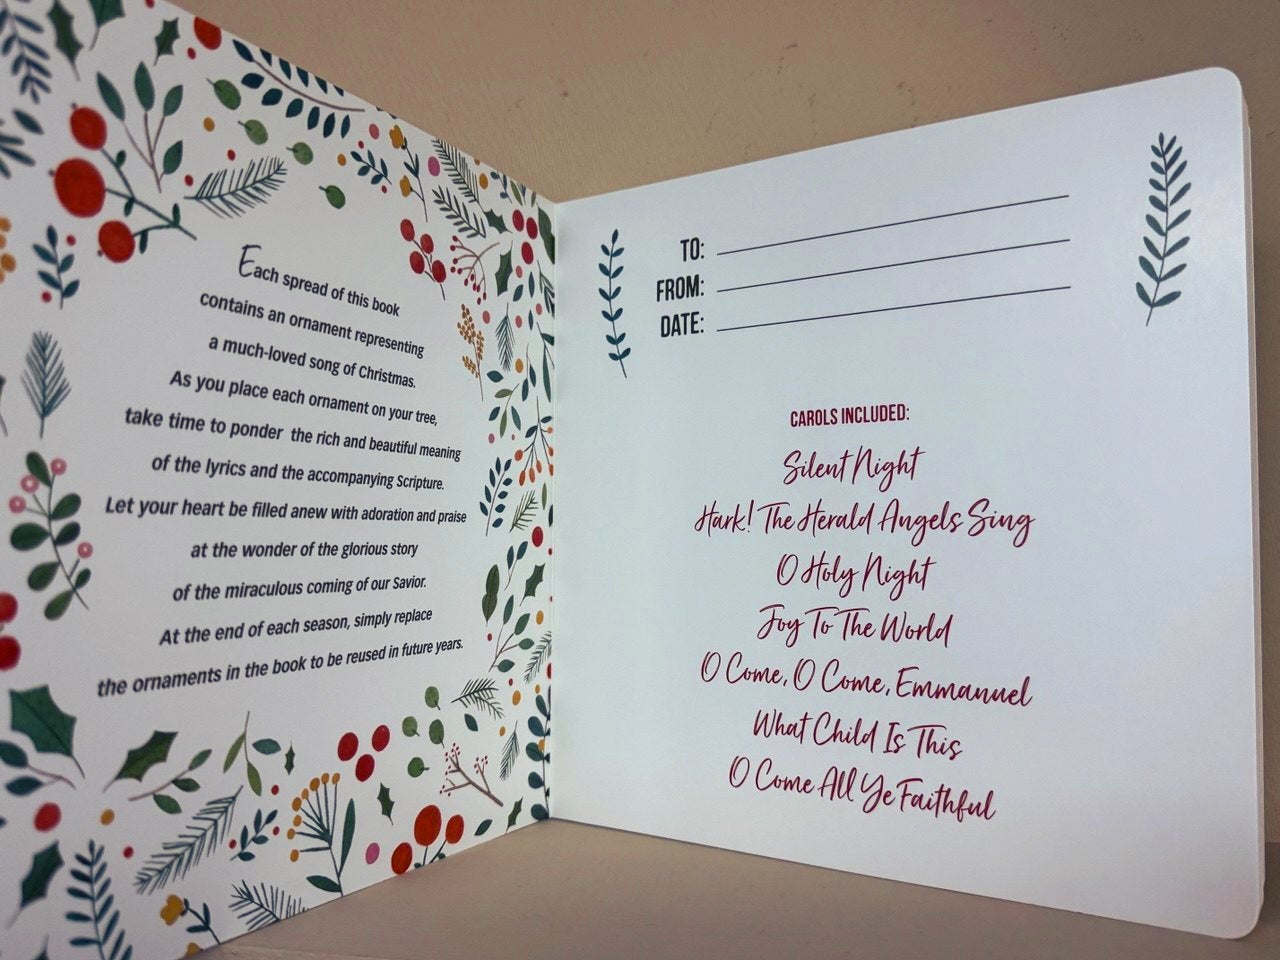 Each spread of this book
contains an ornament representing
a much-loved song of Christmas.
As you place each ornament on your tree,
take time to ponder the rich and beautiful meaning
of the lyrics and the accompanying Scripture.
Let your heart be filled anew with adoration and praise
at the wonder of the glorious story
of the miraculous coming of our Savior.
At the end of each season, simply replace
the ornaments in the book to be reused in future years.
TO:
FROM:
DATE:
CAROLS INCLUDED:
Silent Night
Hark! The Herald Angels Sing
O Holy Night
Joy To The World
O Come, O Come, Emmanuel
What Child Is This
O Come All Ye Faithful